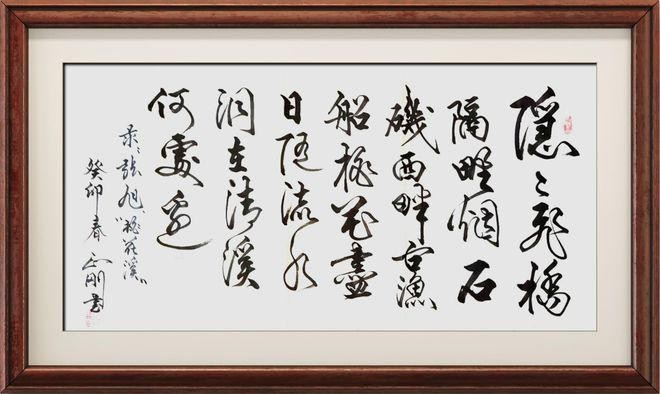 隱〻飛橋
隔野烟石
磯西畔问漁
船桃花盡
日随流水
洞在清溪
何處邊
录:张旭“桃花溪”
癸卯春 正刚书